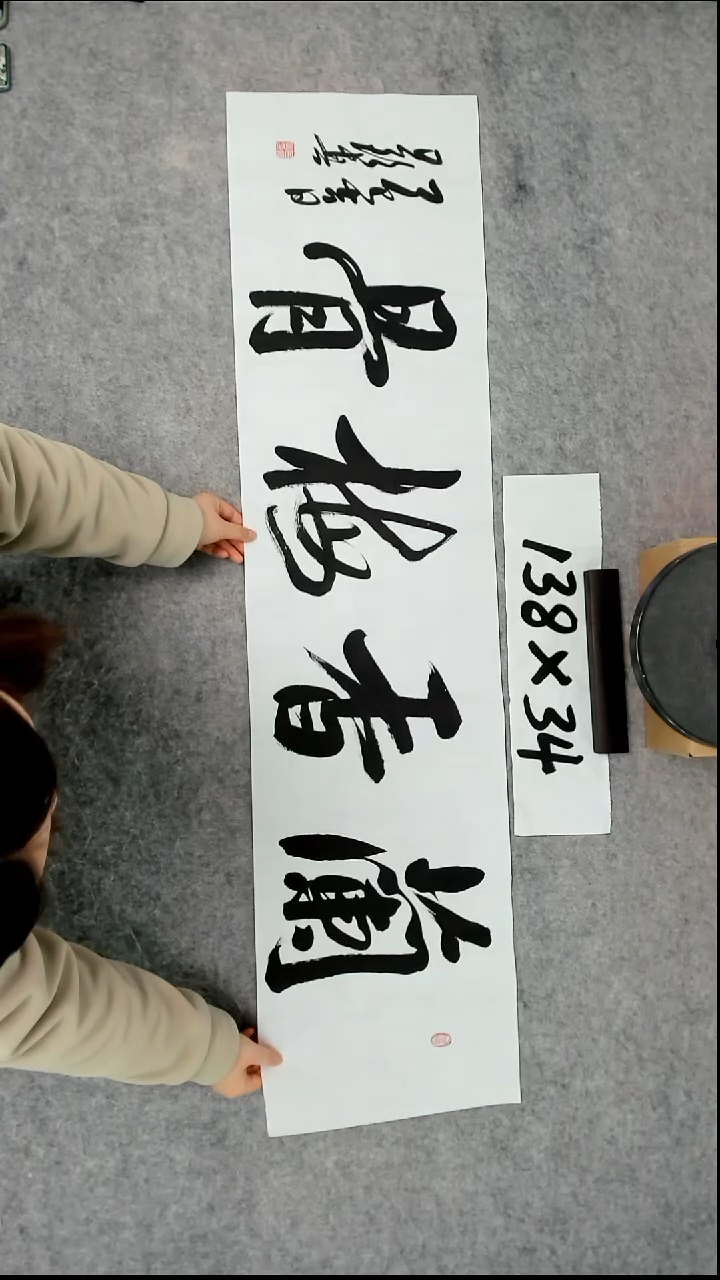 蘭香梅骨
138×34